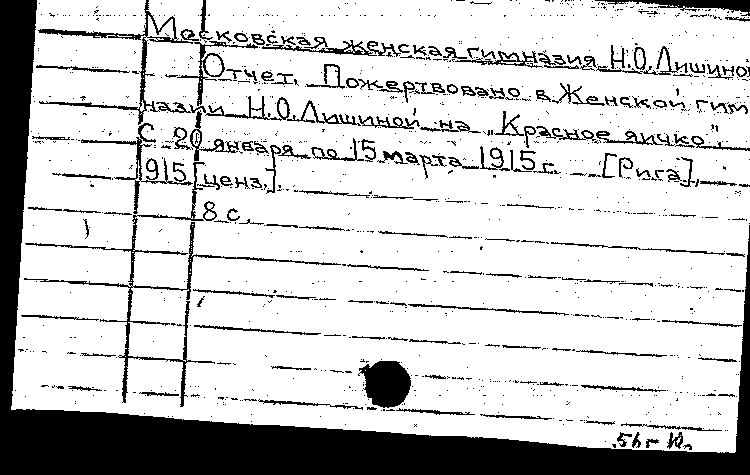 Московская женская гимназия Н.О.Лишиной
Отчет. Пожертвовано в Женской гим
назии Н.О.Лишиной на „Красное яичко".
С 20 января по 15 марта 1915 г. [Рига],
1915 [ценз.].
8 с.